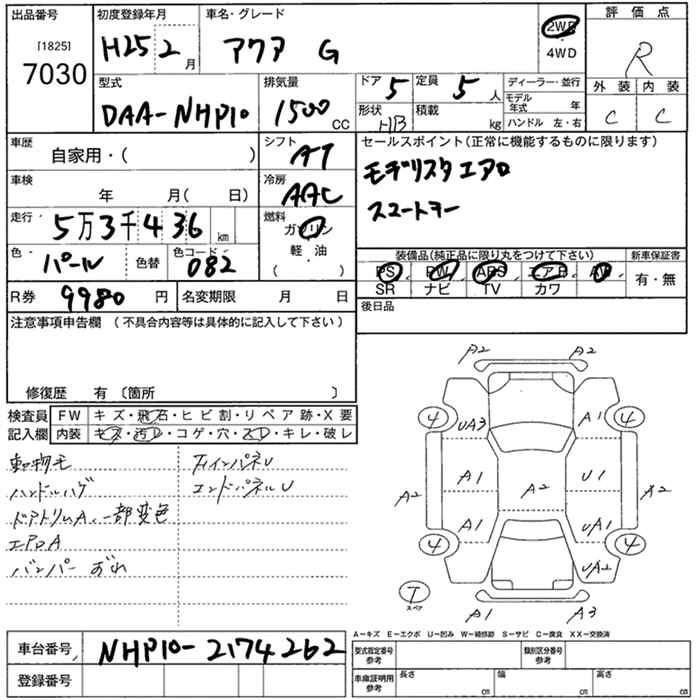 出品番号 初度登録年月 車名・グレード 評価点
[1825]
7030
H25 2月 アクア G 2WD R
4WD
型式 排気量 ドア 定員 ディーラー・並行 外装 内装
DAA-NHP10 1500CC 5 5人 モデル年式 年 C C
形状 HB 積載 kg ハンドル 左・右
車歴 シフト セールスポイント(正常に機能するものに限ります)
自家用・( ) AT モデリスタエアロ
車検 冷房
年 月( 日) AAC スマートキー
走行 燃料
5万3千436km ガソリン
色 色コード 軽・油 装備品(純正品に限り丸をつけて下さい) 新車保証書
パール 色替 082 ・( ) PS PW ABS エアB AW 有・無
SR ナビ TV カワ
R券 9980円 名変期限 月 日 後日品
注意事項申告欄 (不具合内容等は具体的に記入して下さい)
修復歴 有〔箇所 〕
検査員 FW キズ・飛石・ヒビ割・リペア跡・X要
記入欄 内装 キズ・汚レ・コゲ・穴・スレ・キレ・破レ
動物毛 FインパネU
ハンドルハゲ エンドパネルU
ドアトリムA、一部変色
エアロA
バンパー
A2 A2
4 UA3 A1 4
A1 U1
A2 A2 A2
A1 UA1
4 4
UA2
T
スペア
A1 A3
A−キズ E−エクボ U−凹み W−補修跡 S−サビ C−腐食 XX−交換済
車台番号 NHP10-2174262 型式指定番号 参考 類別区分番号 参考
登録番号 車庫証明用 参考 長さ cm 幅 cm 高さ cm